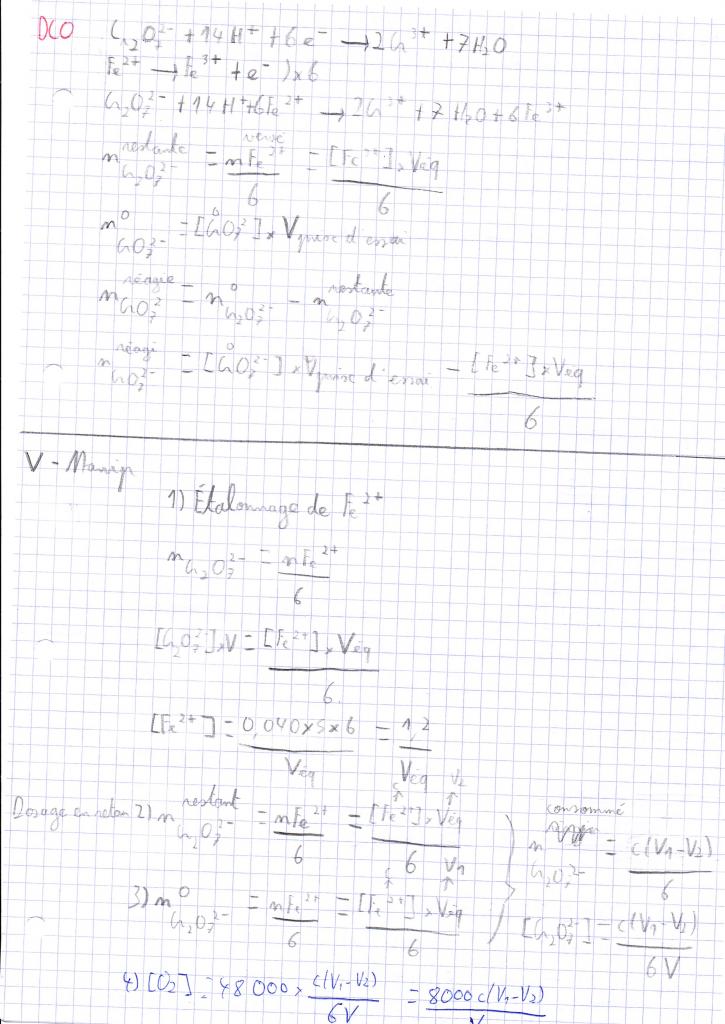 DCO Cr₂O₇²⁻ + 14H⁺ + 6e⁻ → 2Cr³⁺ + 7H₂O
Fe²⁺ → Fe³⁺ + e⁻ )×6
Cr₂O₇²⁻ + 14H⁺ + 6Fe²⁺ → 2Cr³⁺ + 7H₂O + 6Fe³⁺
n restante Cr₂O₇²⁻ = nFe²⁺ versé / 6 = [Fe²⁺] × Véq / 6
n⁰ CrO₇²⁻ = [CrO₇²⁻]⁰ × V prise d'essai
n réagie CrO₇²⁻ = n⁰ Cr₂O₇²⁻ - n restante Cr₂O₇²⁻
n réagi CrO₇²⁻ = [CrO₇²⁻]⁰ × V prise d'essai - [Fe²⁺] × Véq / 6
V - Manip
1) Étalonnage de Fe²⁺
n Cr₂O₇²⁻ = nFe²⁺ / 6
[Cr₂O₇²⁻] × V = [Fe²⁺] × Véq / 6
[Fe²⁺] = 0,040 × 5 × 6 / Véq = 1,2 / Véq
Dosage en retour 2) n restant Cr₂O₇²⁻ = nFe²⁺ / 6 = [Fe²⁺] × Véq / 6
c ↑ V₂ ↑
n consommé Cr₂O₇²⁻ = c(V₁-V₂) / 6
3) n⁰ Cr₂O₇²⁻ = nFe²⁺ / 6 = [Fe²⁺] × Véq / 6
c ↑ V₁ ↑
[Cr₂O₇²⁻] = c(V₁-V₂) / 6V
4) [O₂] = 48000 × c(V₁-V₂) / 6V = 8000 c(V₁-V₂) / V